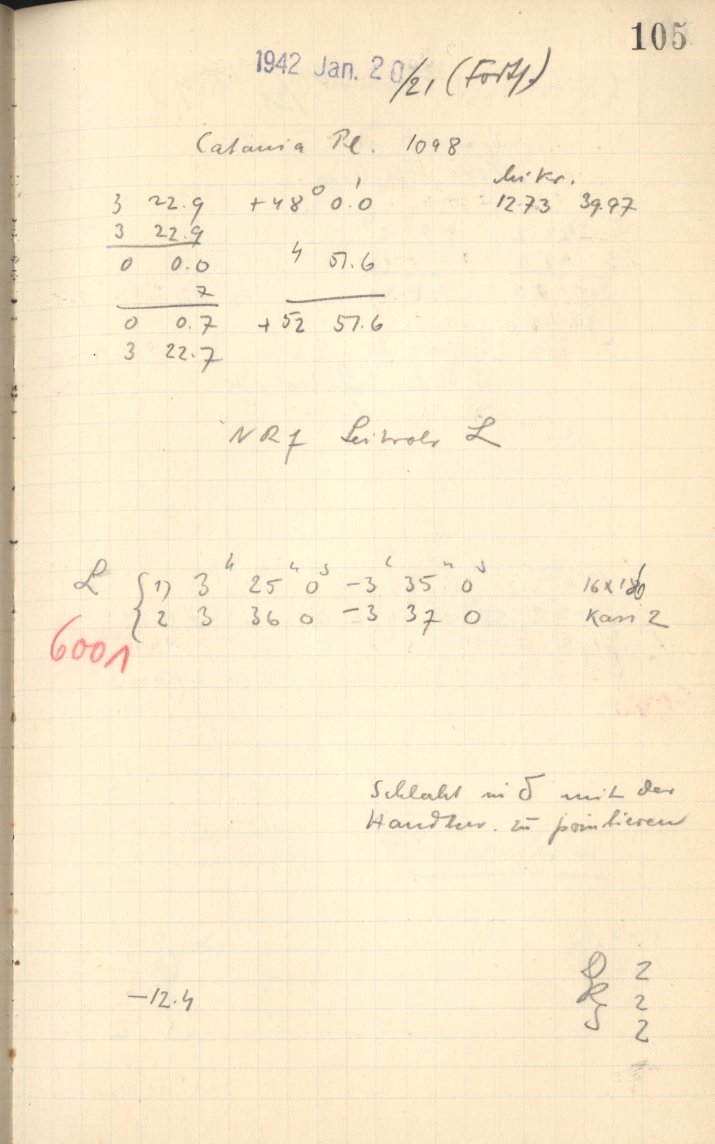 105
1942 Jan. 20/21 (Forts.)
Catania Pl. 1098
Mikr.
3 22.9 +48° 0.'0 12.73 39.97
3 22.9
0 0.0 4 51.6
7
0 0.7 +52 51.6
3 22.7
NR 7 Leitrohr L
L 1) 3h 25m 0s -3h 35m 0s 16x16
6001 2 3 36 0 -3 37 0 Kass 2
Schlecht in δ mit der
zu pointieren
-12.4
D 2
R 2
S 2